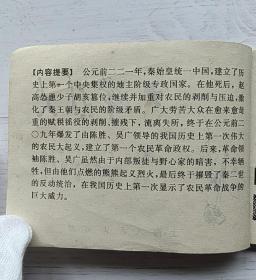 【内容提要】 公元前二二一年，秦始皇统一中国，建立了历
史上第一个中央集权的地主阶级专政国家。在他死后，赵
高怂恿少子胡亥篡位，继续并加重对农民的剥削与压迫，激
化了秦王朝与农民的阶级矛盾。广大劳苦大众在愈来愈重
的赋税徭役的剥削、摧残下，流离失所，终于在公元前二
〇九年爆发了由陈胜、吴广领导的我国历史上第一次伟大
的农民大起义，建立了第一个农民革命政权。后来，革命领
袖陈胜、吴广虽然由于内部叛徒与野心家的暗害，不幸牺
牲，但由他们点燃的熊熊起义烈火，最后终于摧毁了秦二世
的反动统治，在我国历史上第一次显示了农民革命战争的
巨大威力。